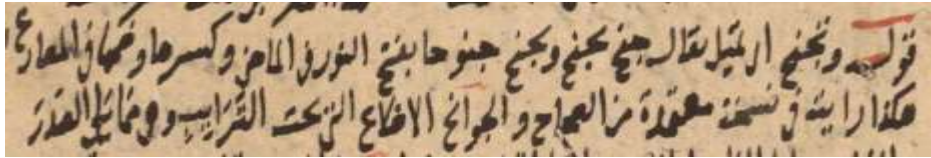 قوله وتجنح اي تميل يقال جنح يجنح ويجنح جنوحا بفتح النون في الماضي وكسرها وضمها في المضارع
هكذا رايت في نسخة معتمدة من الصحاح والجوانح الاضلاع التي تحت الترايب وهي مما يلي الصدر